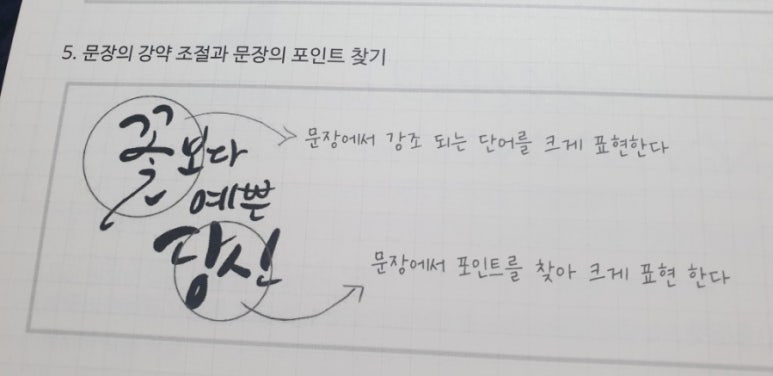 5. 문장의 강약 조절과 문장의 포인트 찾기
꽃보다
예쁜
당신
문장에서 강조 되는 단어를 크게 표현한다
문장에서 포인트를 찾아 크게 표현 한다